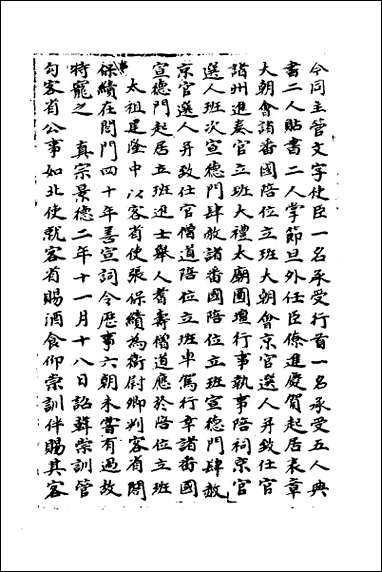 令同主管文字使臣一名承受行首一名承受五人典
書二人貼書二人掌節旦外任臣僚進慶賀起居表章
大朝會諸番國陪位立班大朝會京官選人幷致仕官
諸州進奏官立班大禮太廟圜壇行事執事陪祠京官
選人班次宣德門肆赦諸番國陪位立班宣德門肆赦
京官選人幷致仕官僧道陪位立班車駕行幸諸番國
宣德門起居立班進士舉人耆壽僧道應於陪位立班
太祖建隆中以客省使張保續為衛尉卿判客省閤
保續在閤門四十年善宣詞令歷事六朝未嘗有過故
特寵之 真宗景德二年十一月十八日詔韓崇訓管
勾客省公事如北使就客省賜酒食仰崇訓伴賜其客